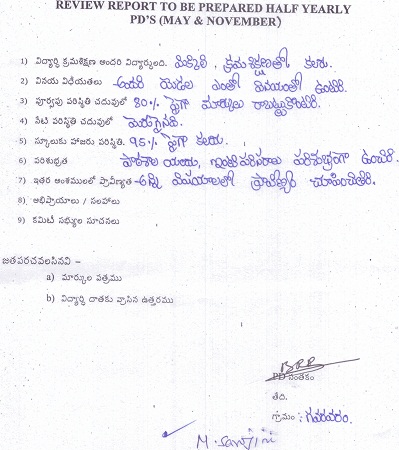 REVIEW REPORT TO BE PREPARED HALF YEARLY
PD'S (MAY & NOVEMBER)
1) విద్యార్థి క్రమశిక్షణ అందరి విద్యార్థులది. మిక్కిలి, క్రమ శిక్షణతో కలరు.
2) వినయ విధేయతలు అందరి యెడల ఎంతో వినయంతో ఉంటిరి.
3) పూర్వపు పరిస్థితి చదువులో 80% పైగా మార్కులు రాబట్టుకొంటిరి.
4) నేటి పరిస్థితి చదువులో మెరుగైనది.
5) స్కూలుకు హాజరు పరిస్థితి. 95% పైగా కలదు.
6) పరిశుభ్రత పాఠశాల యందు, ఇంటి పరిసరాలు పరిశుభ్రంగా ఉంచిరి.
7) ఇతర అంశములలో ప్రావీణ్యత అన్ని విషయాలలో ప్రావీణ్యం చూపించితిరి.
8) అభిప్రాయాలు / సలహాలు
9) కమిటీ సభ్యుల సూచనలు
జతపరచవలసినవి –
a) మార్కుల పత్రము
b) విద్యార్థి దాతకు వ్రాసిన ఉత్తరము
PD సంతకం
తేది.
గ్రామం : గవరవరం.
M. Sanjini